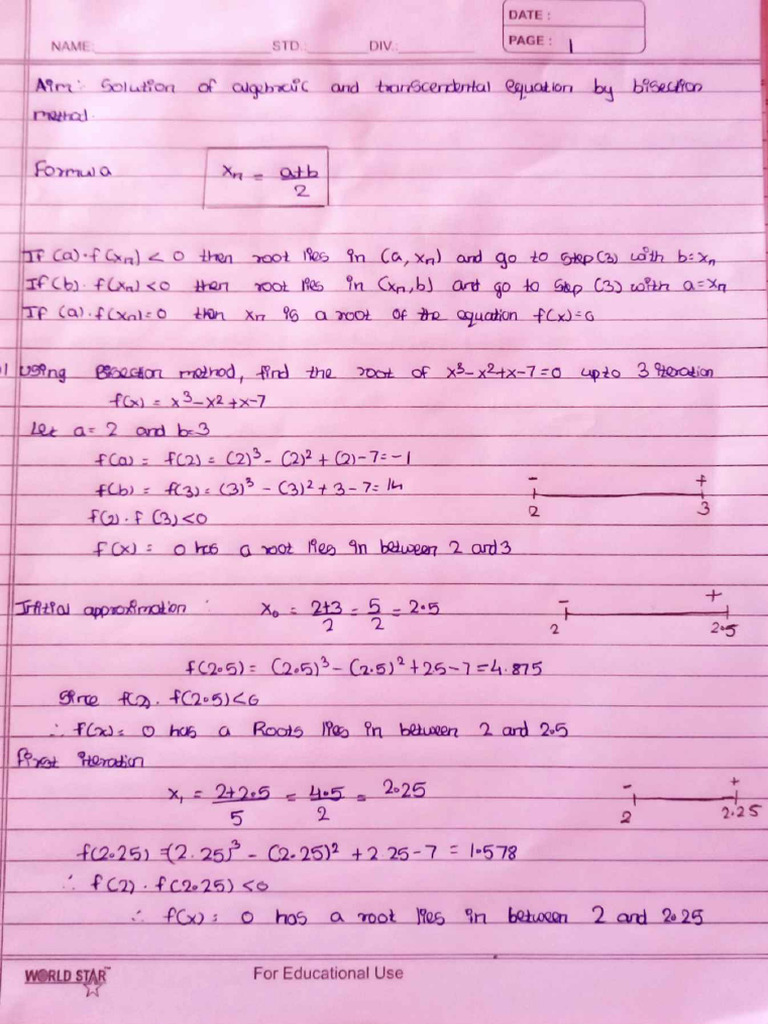 DATE :
NAME: STD.: DIV.: PAGE : 1
Aim: Solution of algebraic and transcendental equation by bisection
method.
Formula xn = a+b/2
If (a)·f(xn) < 0 then root lies in (a, xn) and go to step (3) with b=xn
If (b)· f(xn) <0 then root lies in (xn, b) and go to step (3) with a=xn
If (a)·f(xn)=0 then xn is a root of the equation f(x)=0
1 Using Bisection method, find the root of x³-x²+x-7=0 upto 3 iteration
f(x) = x³-x²+x-7
Let a= 2 and b=3
f(a) = f(2) = (2)³ - (2)² + (2) -7=-1
f(b) = f(3) = (3)³ - (3)² + 3 - 7= 14
- +
2 3
f(2)· f (3)<0
f(x) = 0 has a root lies in between 2 and 3
Initial approximation : x₀ = 2+3/2 = 5/2 = 2.5
- +
2 2.5
f(2.5) = (2.5)³ - (2.5)² + 25 - 7 = 4.875
Since f(2). f(2.5)<0
∴ f(x)= 0 has a Roots lies in between 2 and 2.5
First iteration
x₁ = 2+2.5/5 = 4.5/2 = 2.25
- +
2 2.25
f(2.25) =(2.25)³ - (2.25)² + 2 25 - 7 = 1.578
∴ f(2) · f(2.25) <0
∴ f(x) = 0 has a root lies in between 2 and 2.25
WORLD STAR™ For Educational Use